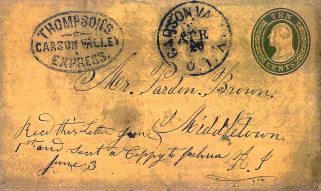 THOMPSON'S
CARSON VALLEY
EXPRESS.
CARSON VA
APR
U.T.
TEN
CENTS
Mr. Pardon Brown.
Middletown.
R I
Recd this Letter June
1st and sent a Coppy to Joshua
June 3